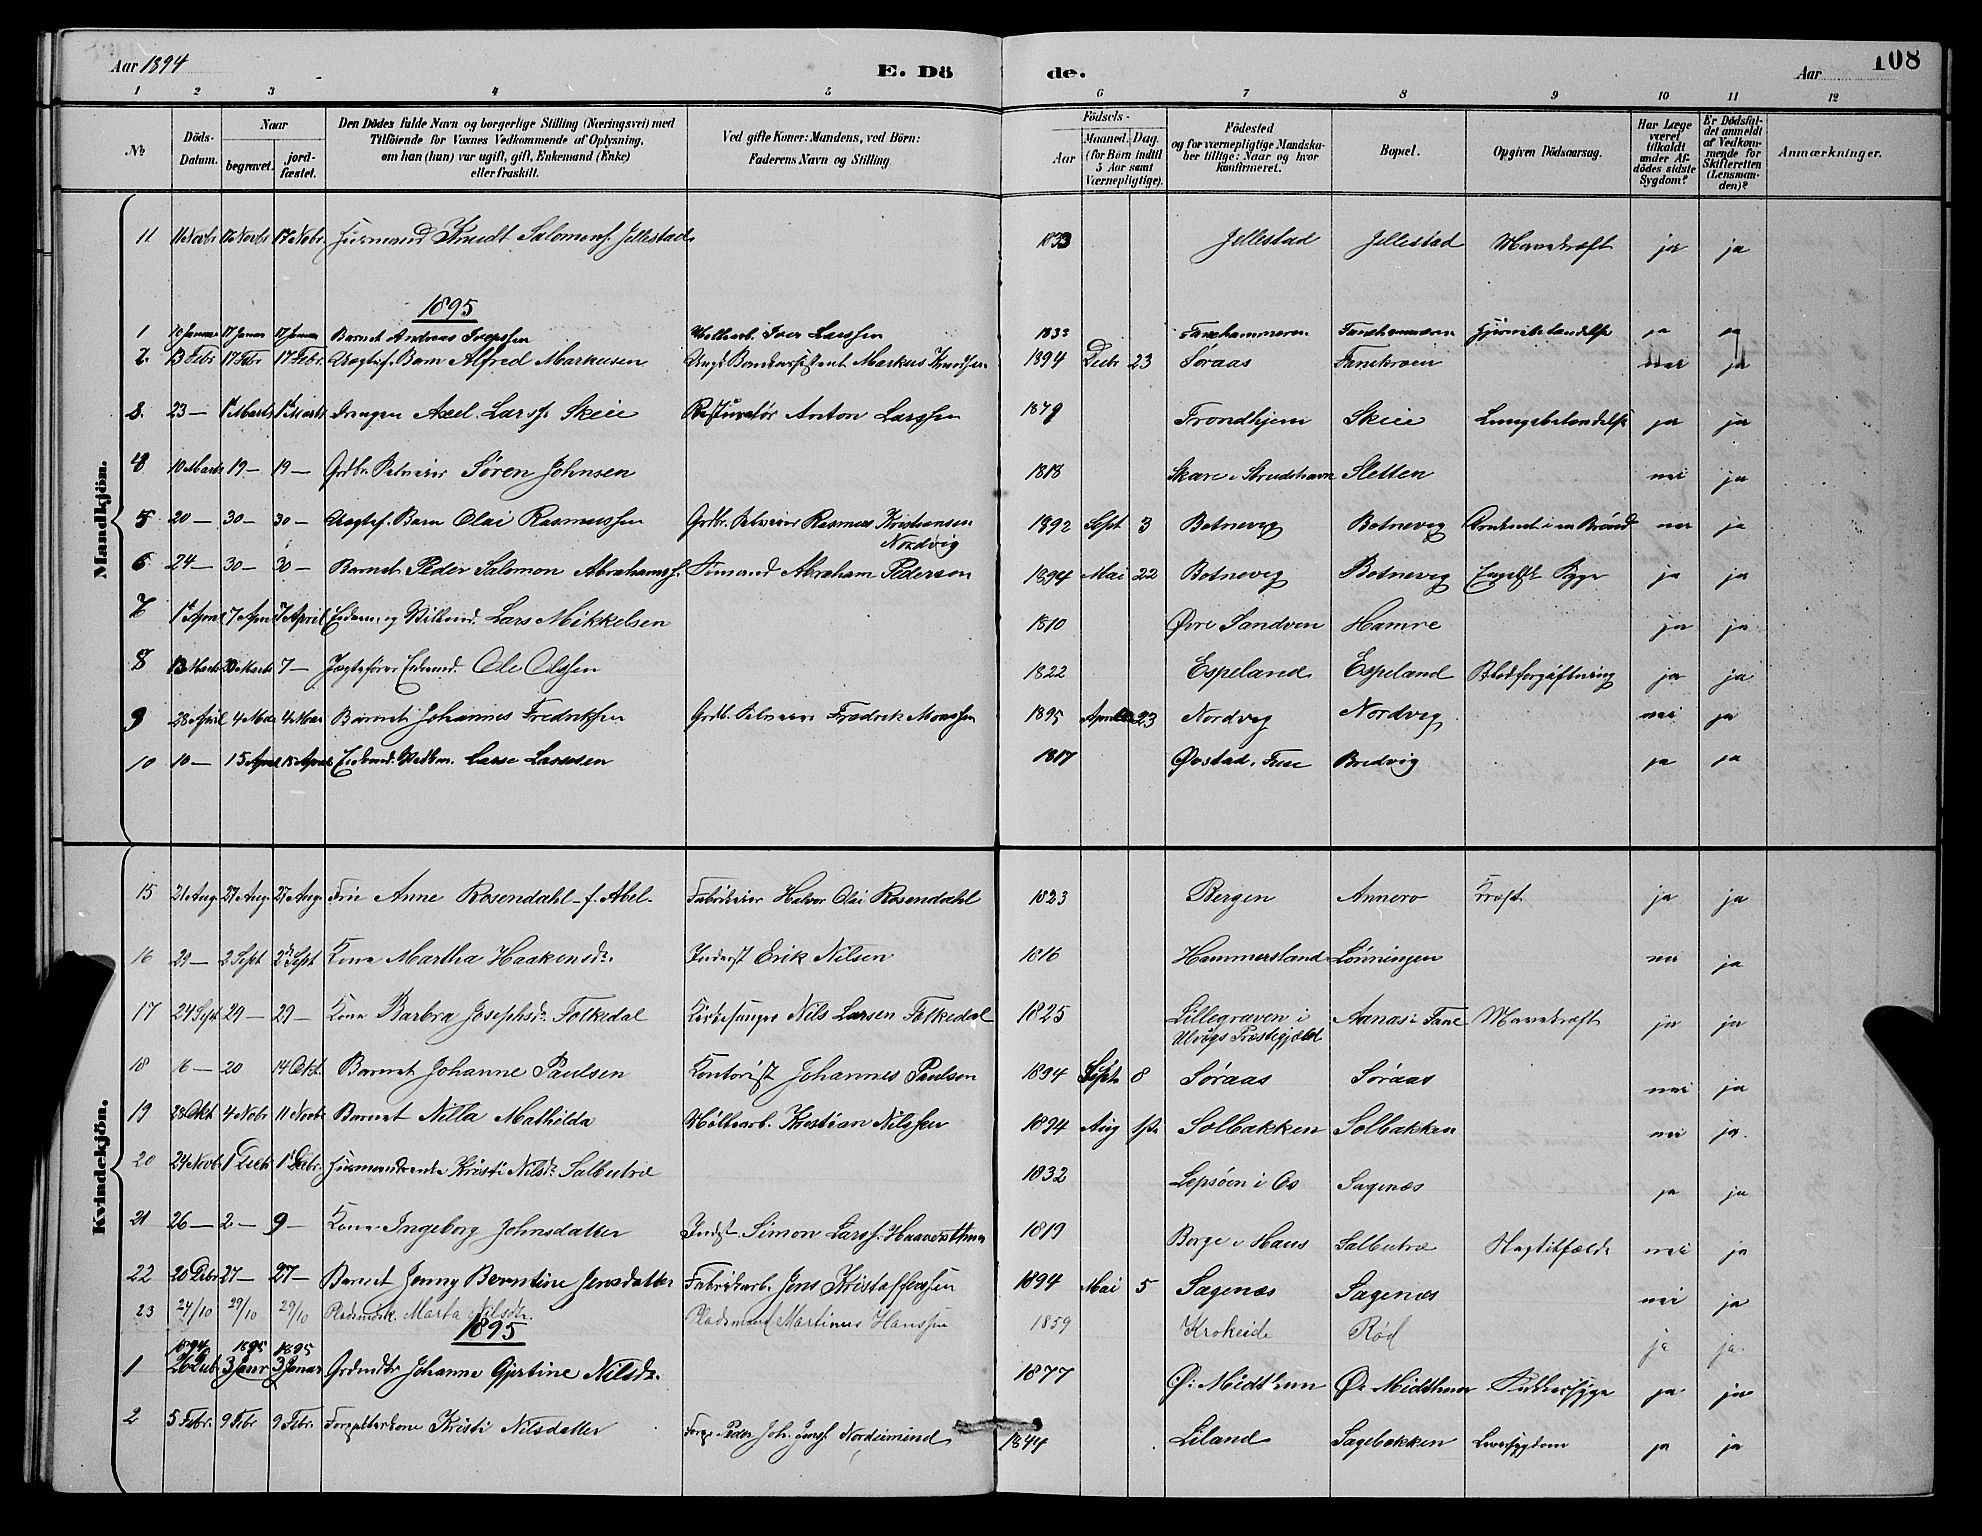 Aar 1894 E. Dö de. Aar 108
1 2 3 4 5 6 7 8 9 10 11 12
№ Döds-Datum. Naar begravet. jord-fæstet. Den Dödes fulde Navn og borgerlige Stilling (Næringsvei) med Tilföiende for Voxnes Vedkommende af Oplysning, om han (hun) var ugift, gift, Enkemand (Enke) eller fraskilt. Ved gifte Koner: Mandens, ved Börn: Faderens Navn og Stilling. Födsels- Aar Maaned. Dag. (for Börn indtil 5 Aar samt Værnepligtige). Födested og for værnepligtige Mandskaber tillige: Naar og hvor konfirmeret. Bopæl. Opgiven Dödsaarsag. Har Læge været tilkaldt under Afdödes sidste Sygdom? Er Dödsfaldet anmeldt af Vedkommende for Skifteretten (Lensmanden)? Anmærkninger.
Mandkjön.
11 11 Novbr 17 Novbr 17 Nobr. Husmand Knudt Salomons. Jellestad 1833 Jellestad Jellestad Mavekræft ja ja
1895
1 17 Januar 17 Januar Barnet Andreas Iversen Iver Larssen Fanehammeren Fanehammeren ja ja
2. 13 Febr 17 Febr 17 Febr. Uægtef. Barn Alfred Markusen Ungk. Markus Knudsen 1894 Decbr 23 Søraas Fanekroen nei ja
3. 23 — 1 Marts 1 Marts Drengen Axel Larss. Skeie Anton Larssen 1879 Trondhjem Skeie Lungebetændelse ja ja
4 10 Marts 19 — 19 — Grdbr. Selveier Søren Johnsen 1818 Skare i Sletten nei ja
5 20 — 30 — 30 — Uægtef. Barn Olai Rasmussen Grdbr. Selveier Rasmus Kristiansen Nordvig 1892 Sept 3 Botnevig Botnevig Druknet i en Brønd nei ja
6 24 — 30 — 30 — Barnet Peder Salomon Abrahams. Sømand Abraham Pedersen 1894 Mai 22 Botnevig Botnevig Engelsk Syge ja ja
7 1 April 7 April 7 April Lars Mikkelsen 1810 Øvre Sandven Hamre ja ja
8 13 Marts 20 Marts 7 — Jægtefører Enkemd. Ole Olssen 1822 Espeland Espeland Blodforgiftning ja ja
9 28 April 4 Mai 4 Mai Barnet Johannes Fredriksen Grdb. Selveier Fredrik Monssen 1895 April 23 Nordvig Nordvig nei ja
10 10 — 15 April 15 April Enkemd. Lasse Lassesen 1817 Øvstad i Fuse Bredvig ja ja
Kvindekjön.
15 21 Aug. 27 Aug. 27 Aug. Fru Anne Rosendahl f. Abel. Fabrikeier Halvor Olai Rosendahl 1823 Bergen Annero Kræft ja ja
16 29 — 2 Sept 2 Sept Kone Martha Haakensdr. Inderst Erik Nilsen 1816 Hammersland Lønningen nei ja
17 24 Sept 29 — 29 — Kone Barbra Josephsdr. Folkedal Kirkesanger Nils Larsen Folkedal 1825 Lillegraven i Ulvigs Præstegjeld Aanas i Fane Mavekræft ja ja
18 16 — 20 14 Okt. Barnet Johanne Paulsen Kontorist Johannes Paulsen 1894 Sept. 8 Søraas Søraas nei ja
19 28 Okt 4 Nobr 11 Novbr Barnet Nilla Mathilda Møllearb. Kristian Nilssen 1894 Aug Solbakken Solbakken nei ja.
20 24 Novbr 1 Decbr 1 Decbr. Husmandsenke Kristi Nilsdr. Salbutræ 1832 Lepsøen i Os Sagenæs ja ja
21 26 — 2 — 9 — Kone Ingeborg Johnsdatter Inderst Simon Larss. 1819 Borge i Haus Salbutræ nei ja
22 20 Debr 27 — 27 — Barnet Jenny Berntine Jensdatter Fabrikarb. Jens Kristoffersen 1894 Mai 5 Sagenæs Sagenæs nei ja
23 24/10 29/10 29/10 Marta Nilsdr. Pladsmand Martinus Hanssen 1859 Krokeide Rød ja ja.
1895
1894 1895 1895
1 26 Decbr 3 Janr 3 Januar Johanne Gjertine Nilsdr. 1877 Ø: Midthun Ø. Midthun Sukkersyge ja ja
2 5 Febr. 9 Febr 9 Febr. Kristi Nilsdatter Peder Joh. 1844 Liland Sagebakken Leversygdom ja ja